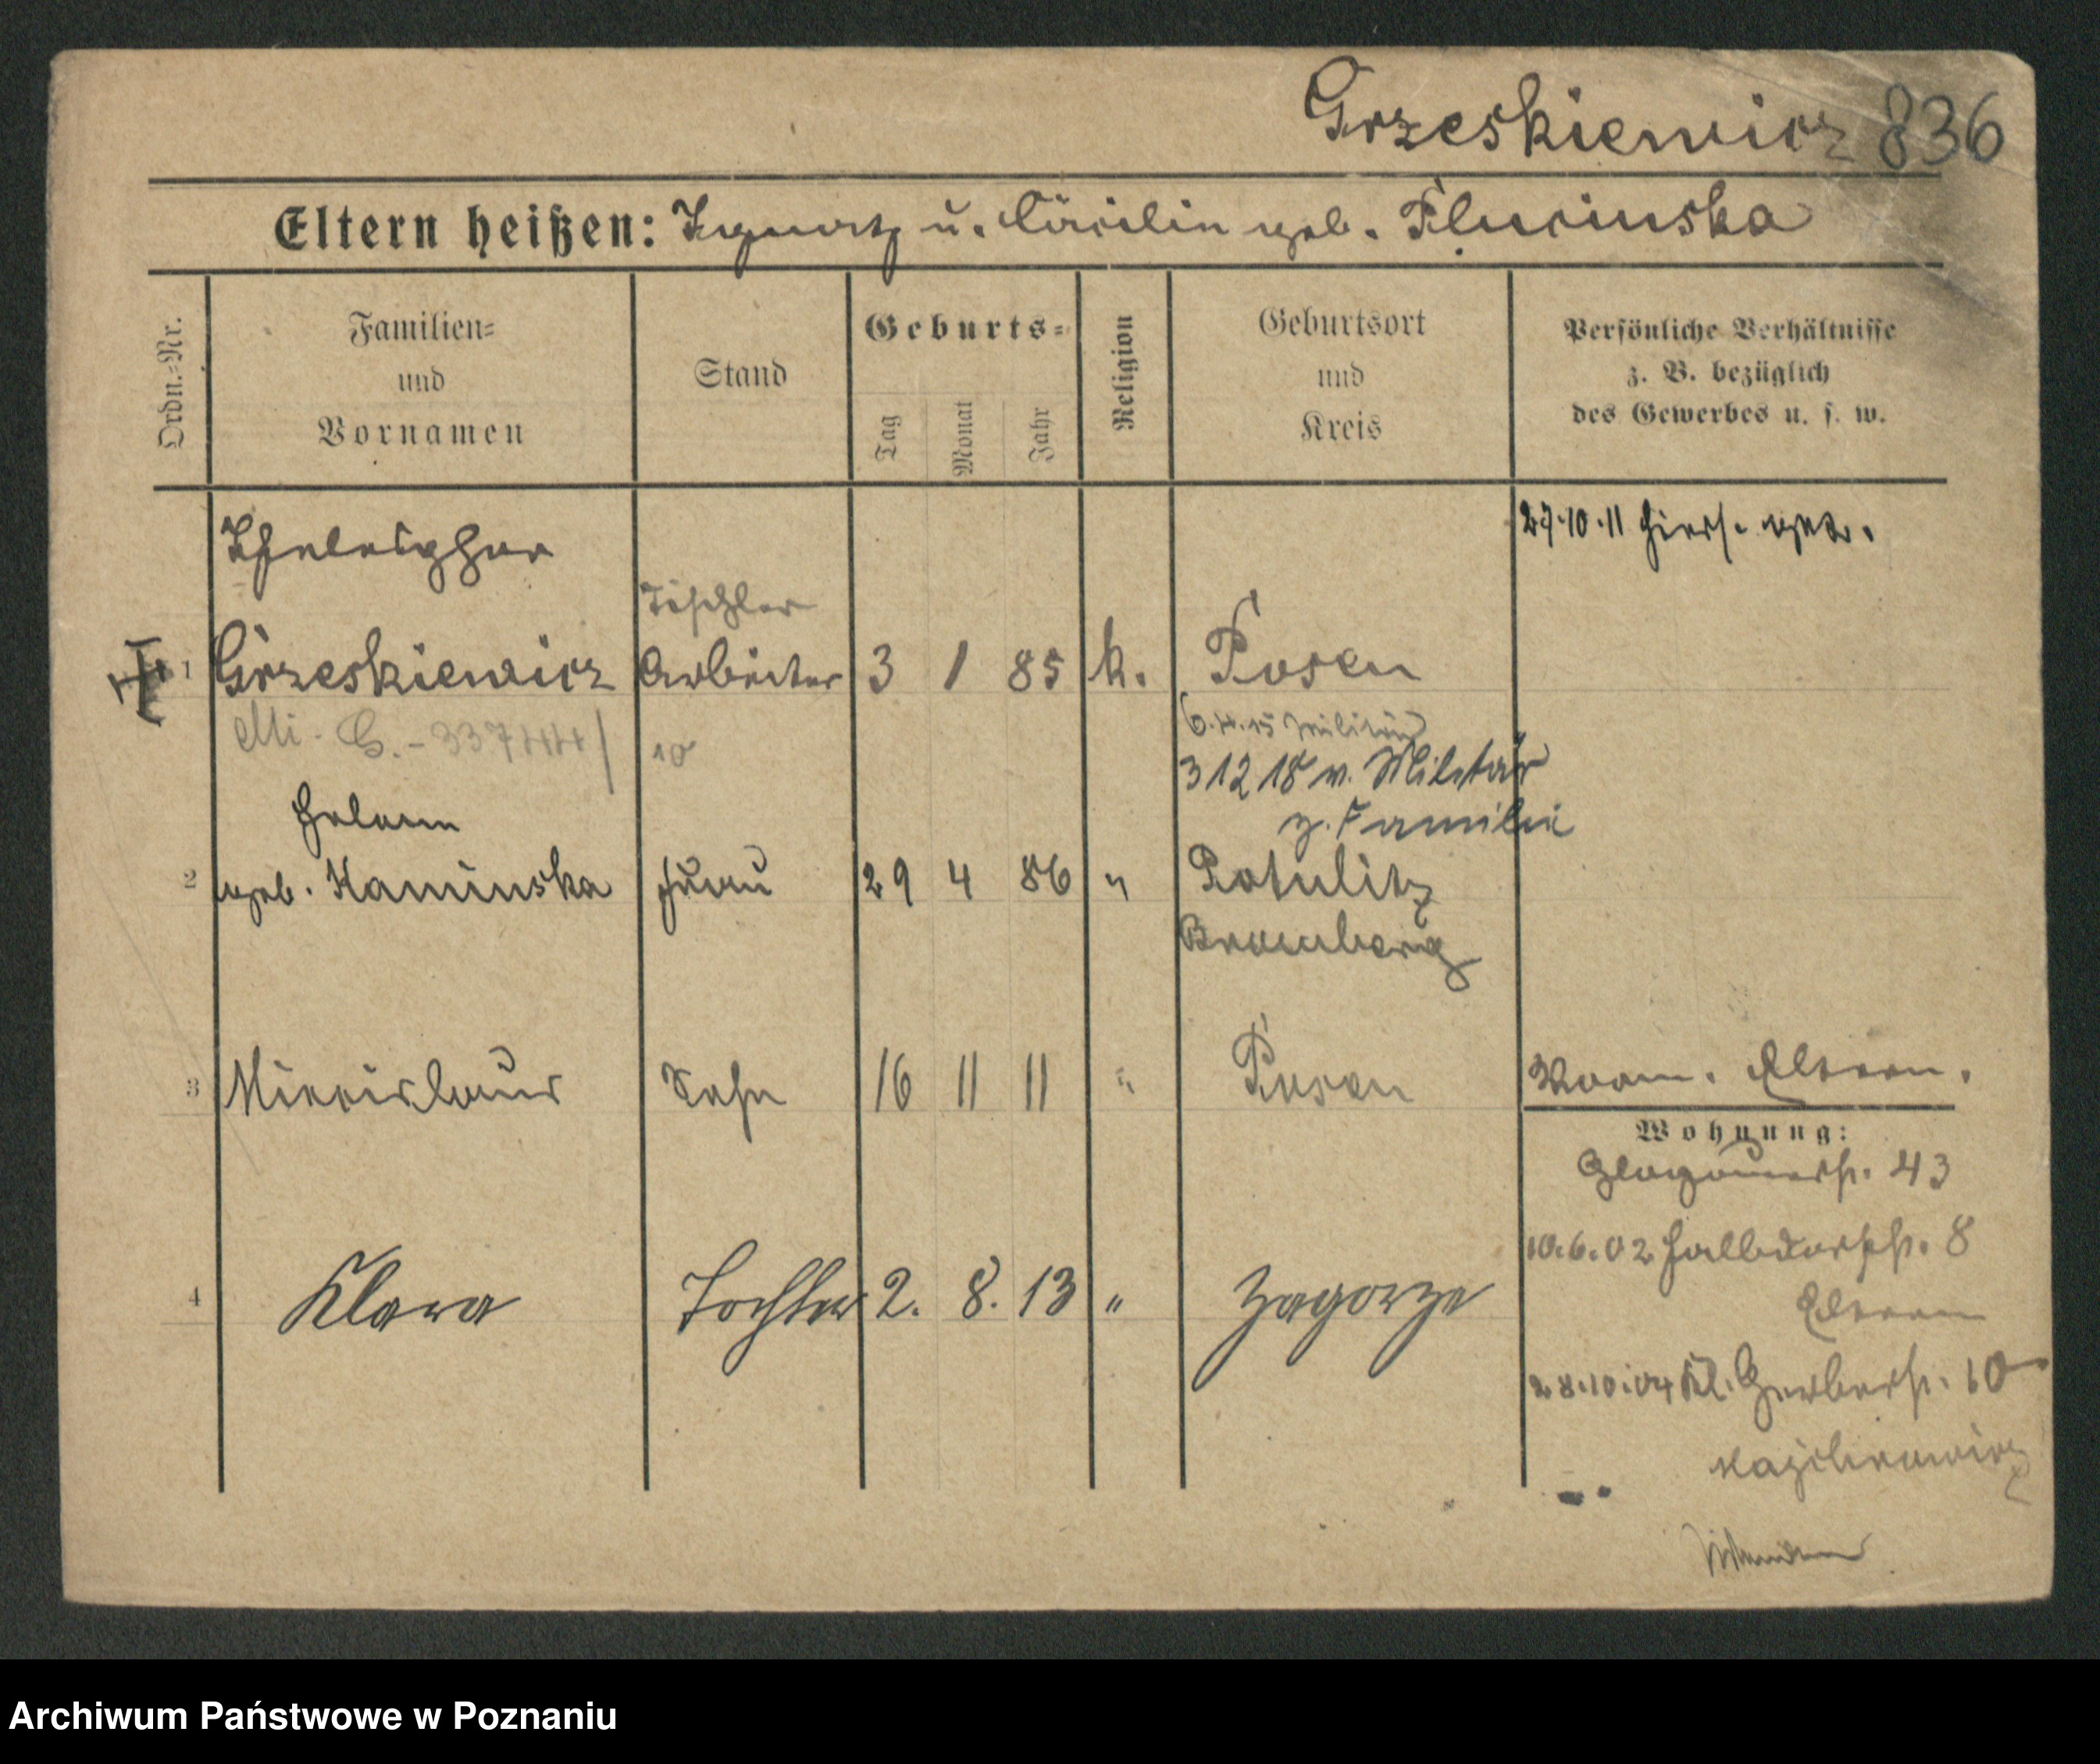 Grzeskiewicz 836
Eltern heißen: Ignatz u. Cäcilie geb. Plucinska
Ordn.-Nr.
Familien-
und
Vornamen
Stand
Geburts-
Tag
Monat
Jahr
Religion
Geburtsort
und
Kreis
Persönliche Verhältnisse
z. B. bezüglich
des Gewerbes u. s. w.
27.10.11 hiers. get.
Tischler
1 Grzeskiewicz Arbeiter 3 1 85 k. Posen
6.4.15 Militär
3 12 18 v. Militär
z. Familie
Helene
2 geb. Kaminska Frau 29 4 86 " Potulitz
Bromberg
3 Miecislaus Sohn 16 11 11 " Posen
Eltern.
Wohnung:
Glogauerstr. 43
10.6.02 Halbdorfstr. 8
Eltern
4 Klara Tochter 2. 8. 13 " Zagorze
28.10.04 Kl. Gerberstr. 10
Archiwum Państwowe w Poznaniu